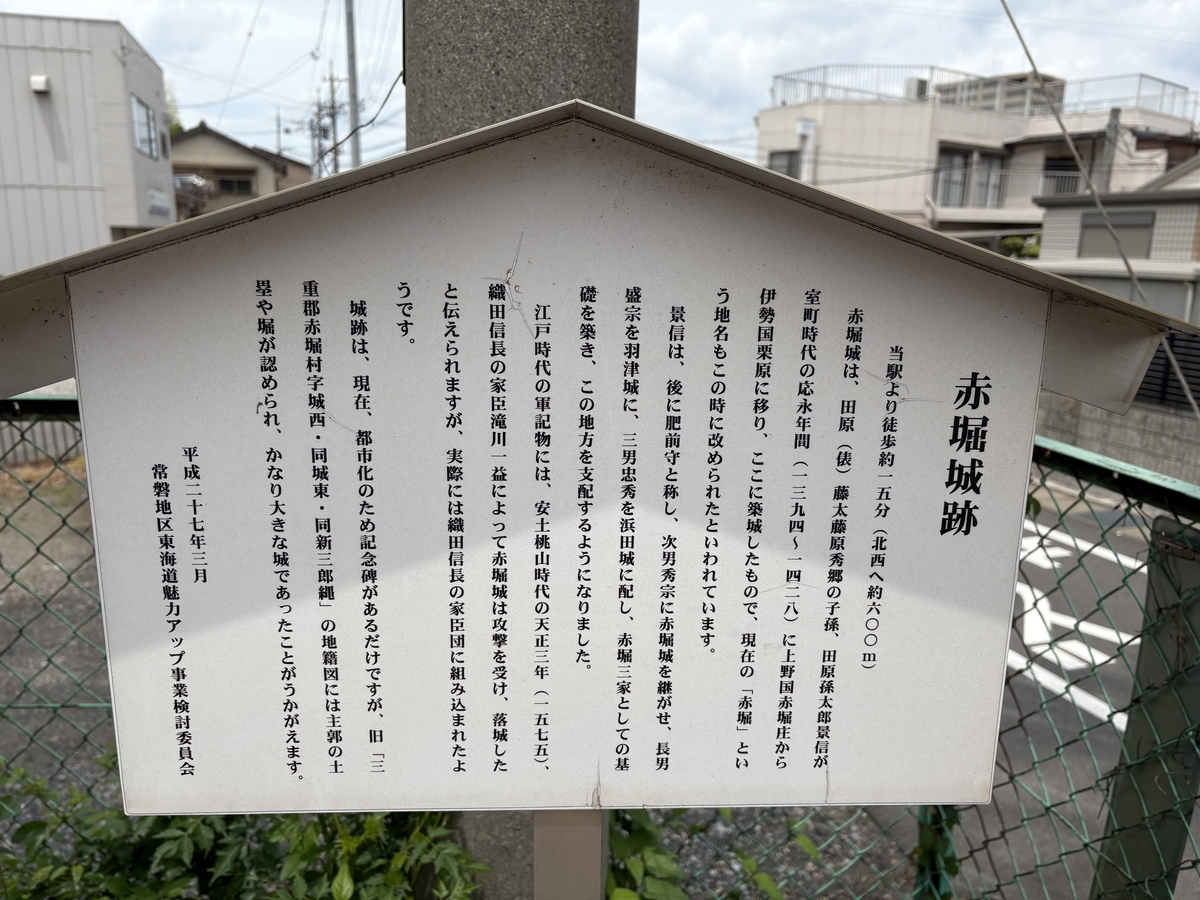 赤堀城跡
当駅より徒歩約一五分（北西へ約六〇〇ｍ）
赤堀城は、田原（俵）藤太藤原秀郷の子孫、田原孫太郎景信が
室町時代の応永年間（一三九四～一四二八）に上野国赤堀庄から
伊勢国栗原に移り、ここに築城したもので、現在の「赤堀」とい
う地名もこの時に改められたといわれています。
景信は、後に肥前守と称し、次男秀宗に赤堀城を継がせ、長男
盛宗を羽津城に、三男忠秀を浜田城に配し、赤堀三家としての基
礎を築き、この地方を支配するようになりました。
江戸時代の軍記物には、安土桃山時代の天正三年（一五七五）、
織田信長の家臣滝川一益によって赤堀城は攻撃を受け、落城した
と伝えられますが、実際には織田信長の家臣団に組み込まれたよ
うです。
城跡は、現在、都市化のため記念碑があるだけですが、旧「三
重郡赤堀村字城西・同城東・同新三郎縄」の地籍図には主郭の土
塁や堀が認められ、かなり大きな城であったことがうかがえます。
平成二十七年三月
常磐地区東海道魅力アップ事業検討委員会